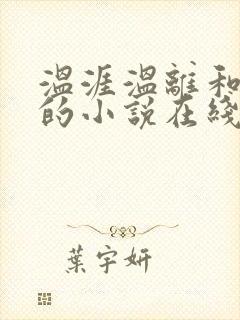 温涯温離和
的小説在綫
葉宇妍